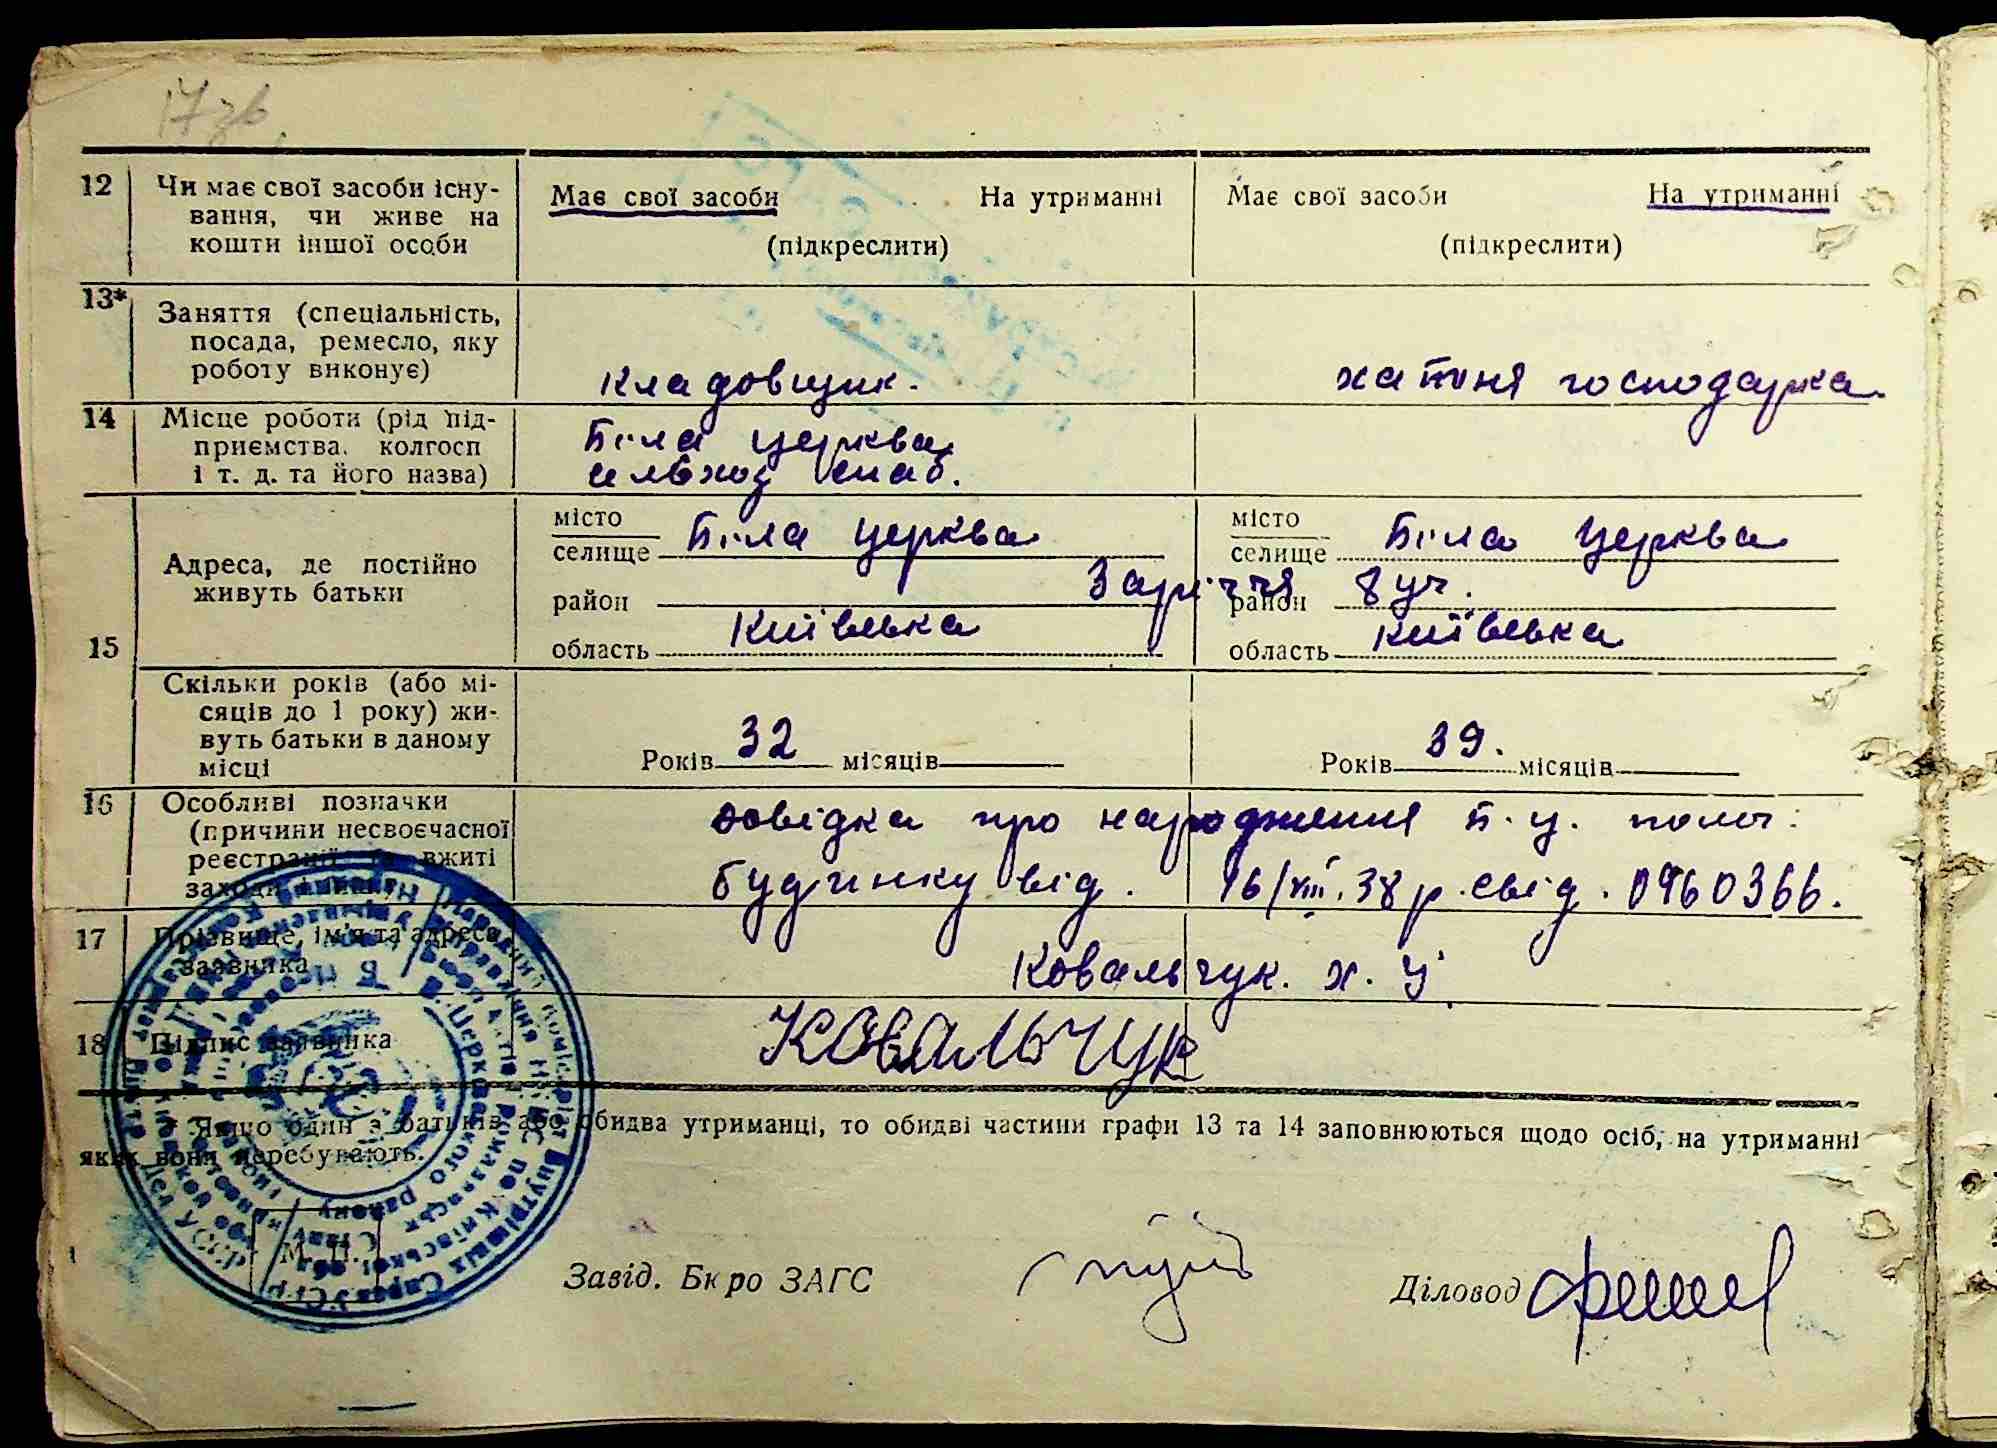 17зв
12 Чи має свої засоби існу- Має свої засоби На утриманні Має свої засоби На утриманні
вання, чи живе на
кошти іншої особи (підкреслити) (підкреслити)
13* Заняття (спеціальність,
посада, ремесло, яку
роботу виконує) кладовщик. хатня господарка
14 Місце роботи (рід під- Біла церква
приємства, колгосп
і т. д. та його назва) сельхоз снаб.
місто Біла церква місто Біла церква
селище селище
Адреса, де постійно
живуть батьки район Заріччя район 8 уч.
15 область Київська область Київська
Скільки років (або мі-
сяців до 1 року) жи-
вуть батьки в даному Років 32 місяців Років 39. місяців
місці
16 Особливі позначки довідка про народження Б. ц. полог.
(причини несвоєчасної
реєстрації та вжиті
заходи і інше) будинку від. 16/VIII.38 р. свід. 0960366.
17 Прізвище, ім'я та адреса
заявника Ковальчук. х. у
18 Підпис заявника Ковальчук
* Якщо один з батьків або обидва утриманці, то обидві частини графи 13 та 14 заповнюються щодо осіб, на утриманні
яких вони перебувають.
М. П.
Завід. Бюро ЗАГС Діловод